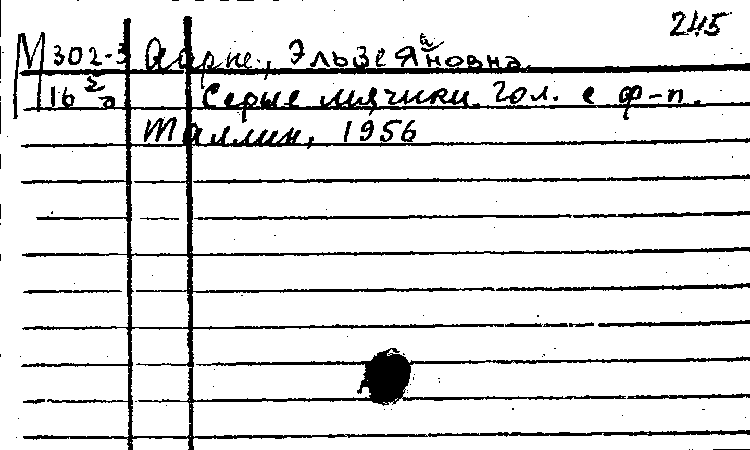 245
М 302-3 Аарне, Эльзе Яновна.
16 Серые мячики. Гол. с ф-п.
Таллин, 1956